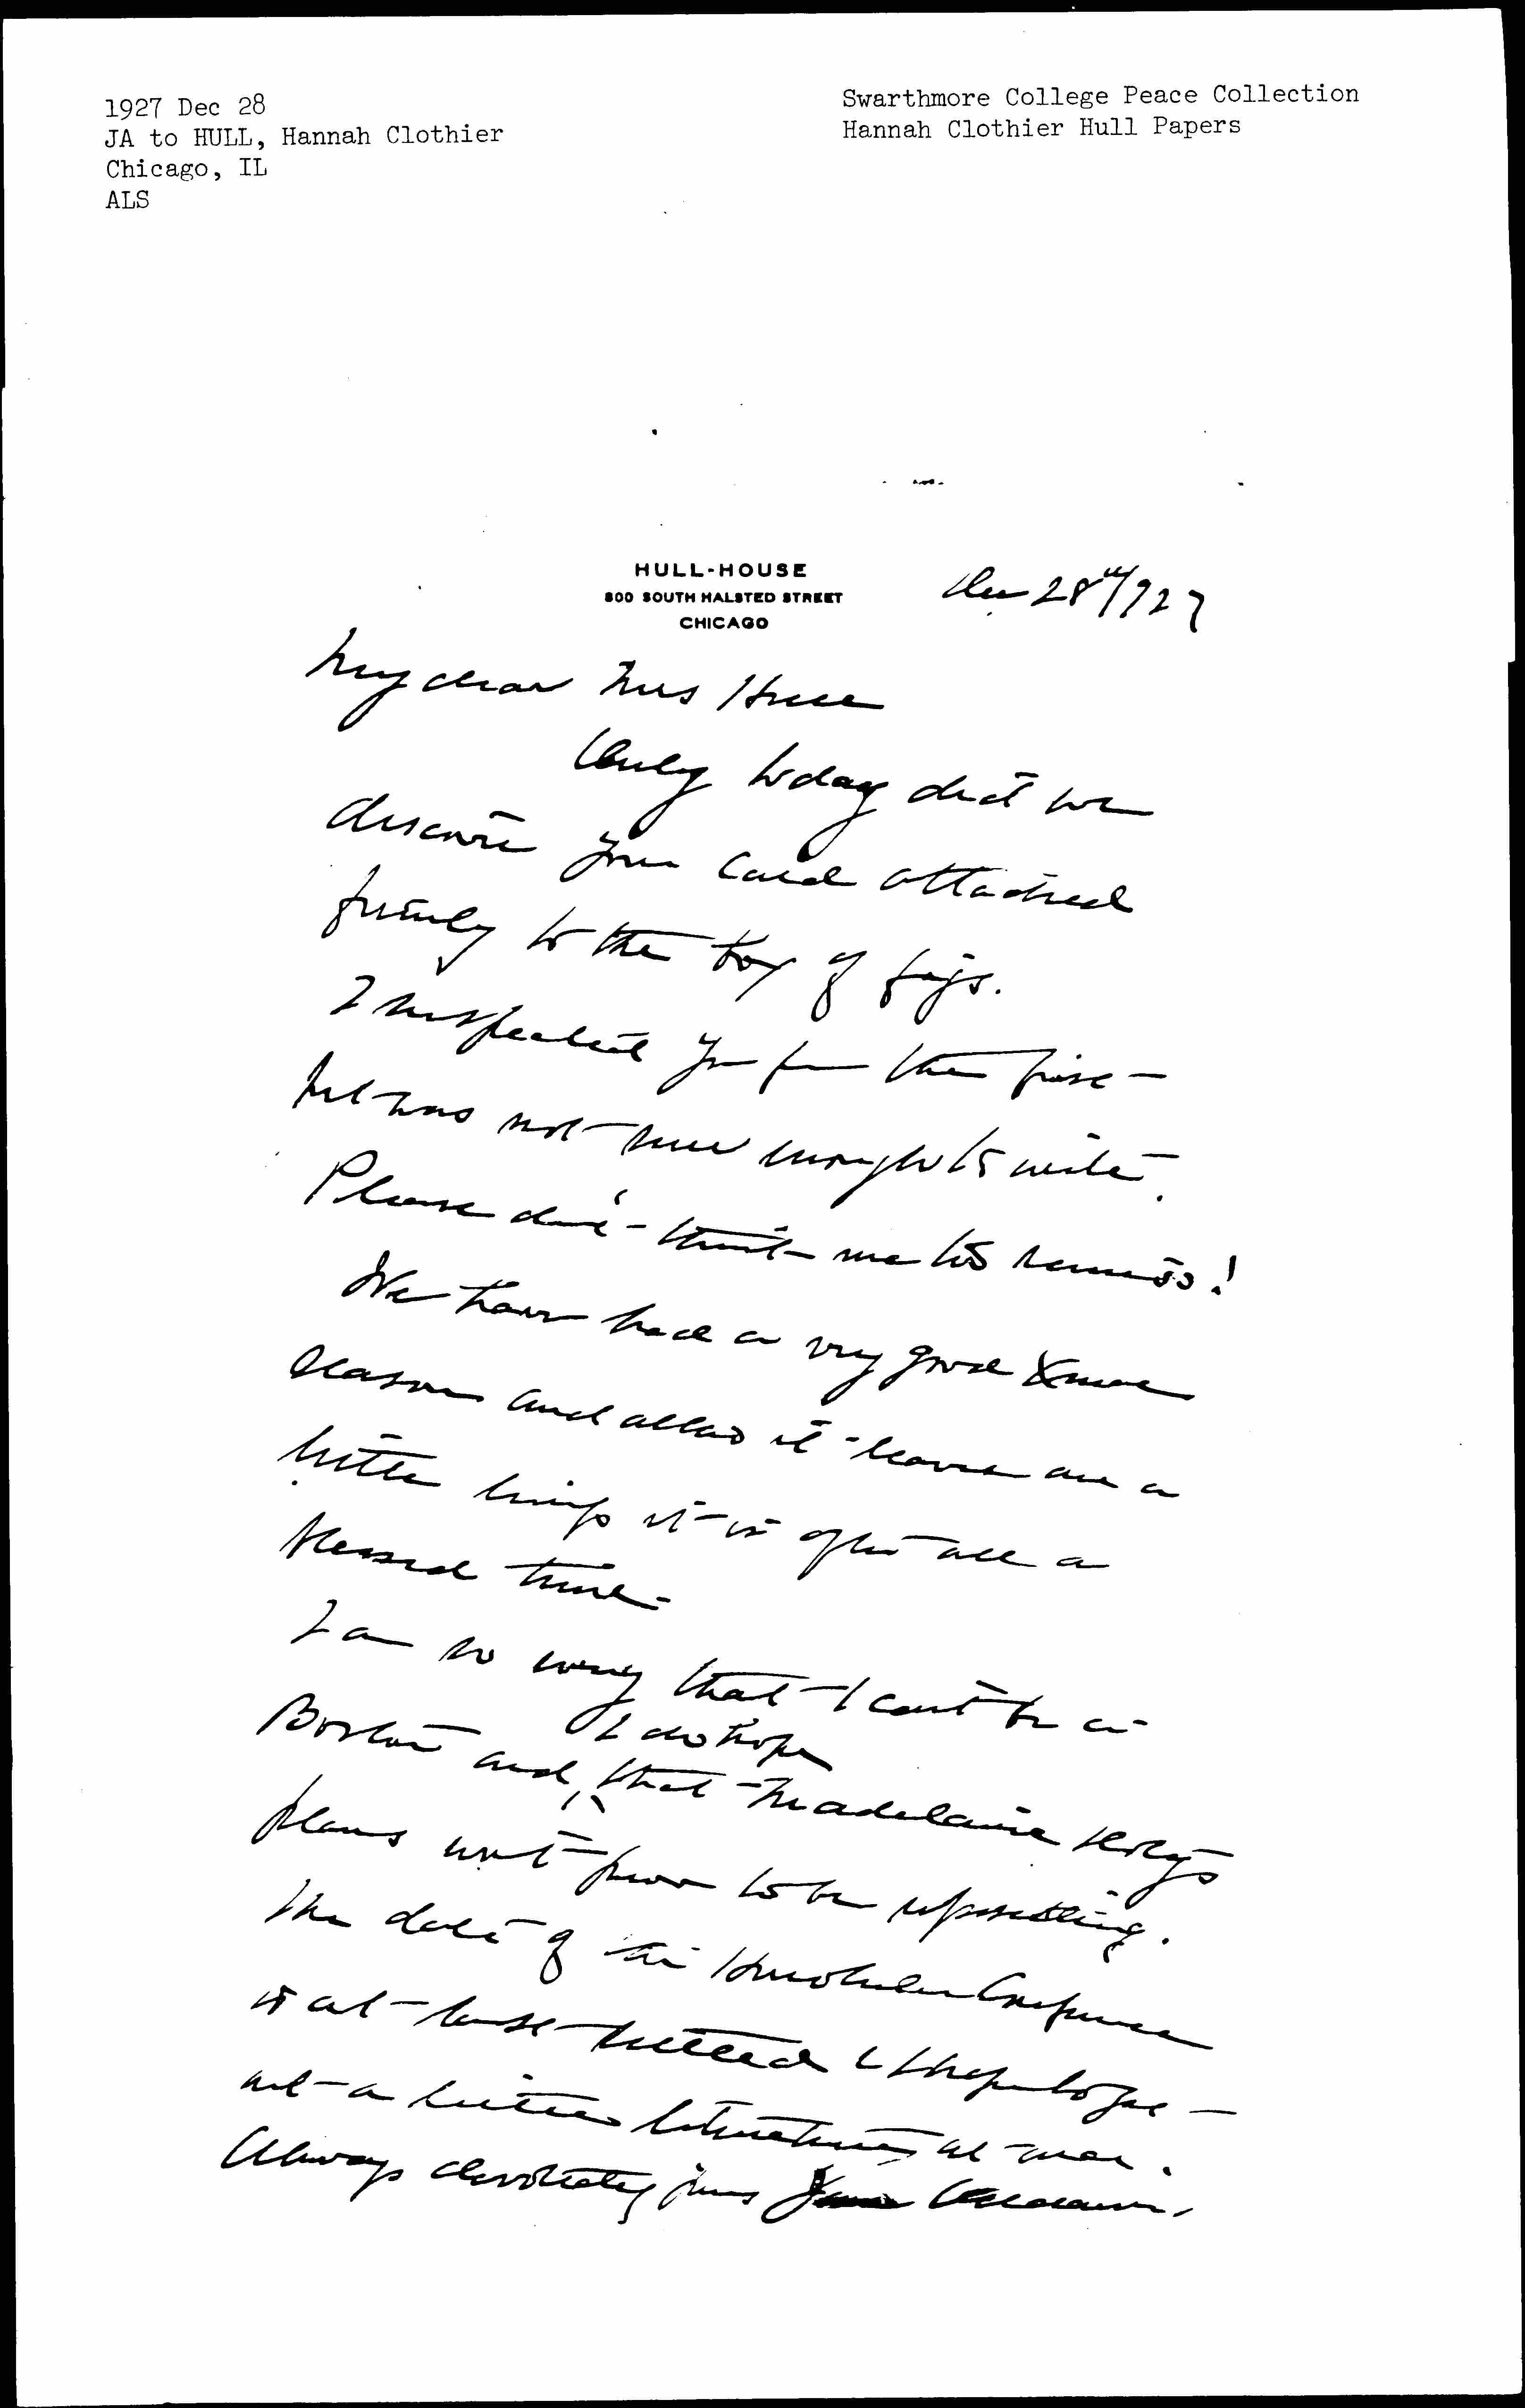 1927 Dec 28
JA to HULL, Hannah Clothier
Chicago, IL
ALS
Swarthmore College Peace Collection
Hannah Clothier Hull Papers
HULL-HOUSE
800 SOUTH HALSTED STREET
CHICAGO
Dec 28"/927
My dear Mrs Hull
Only today did we
discover your card attached
firmly to the box of figs.
I suspected you from the first —
but was not sure enough to write.
Please don't think me too remiss!
We have had a very good Xmas
season and altho it leaves one a
little limp it is after all a
blessed time.
I am so sorry that I can't be in
Boston and I do hope that Madelaine Doty's
plans won't prove to be upsetting.
The date of the Honolulu Conference
is at last settled & I hope to go —
not a settled at
Always devotedly yours Jane Addams.